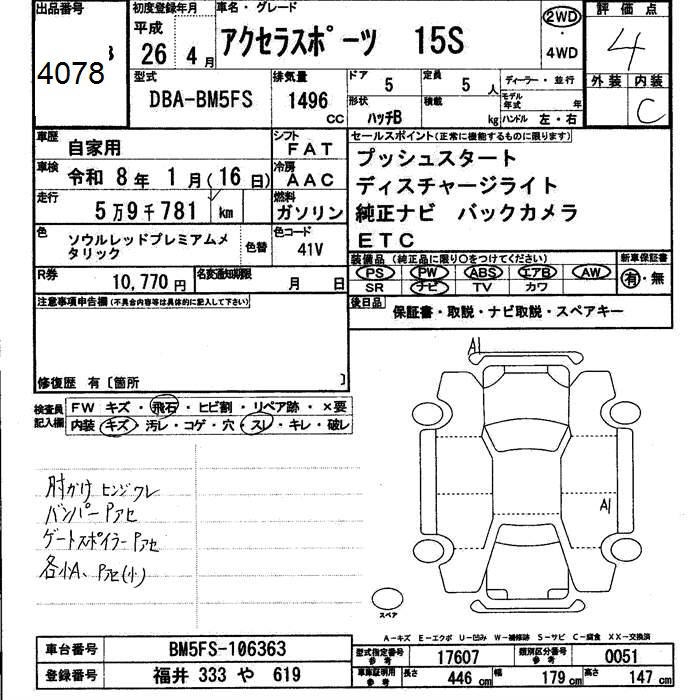 出品番号 初度登録年月 車名・グレード 評価点
4078 平成 26 4月 アクセラスポーツ 15S 2WD・4WD 4
型式 排気量 ドア 定員 ディーラー・並行 外装 内装
DBA-BM5FS 1496 CC 5 5人 モデル年式 年 C
形状 積載
ハッチB kg ハンドル 左・右
車歴 自家用 シフト FAT セールスポイント(正常に機能するものに限ります)
車検 令和 8年 1月(16日) 冷房 AAC プッシュスタート
ディスチャージライト
走行 5万9千781 km 燃料 ガソリン 純正ナビ バックカメラ
ETC
色 ソウルレッドプレミアムメタリック 色替 色コード 41V
装備品(純正品に限り〇をつけてください) 新車保証書
PS PW ABS エアB AW 有・無
SR ナビ TV カワ
R券 10,770円 名変通知期限 月 日
後日品 保証書・取説・ナビ取説・スペアキー
注意事項申告欄(不具合内容等は具体的に記入して下さい)
修復歴 有〔箇所 〕
検査員記入欄 FW キズ・飛石・ヒビ割・リペア跡・×要
内装 キズ・汚レ・コゲ・穴・スレ・キレ・破レ
A1
A1
肘かけ ヒンジワレ
バンパーPアセ
ゲートスポイラーPアセ
各小A、Pアセ(小)
スペア
A-キズ E-エクボ U-凹み W-補修跡 S-サビ C-腐食 XX-交換済
車台番号 BM5FS-106363 型式指定番号 参考 17607 類別区分番号 参考 0051
登録番号 福井 333 や 619 車庫証明用 参考 長さ 446 cm 幅 179 cm 高さ 147 cm